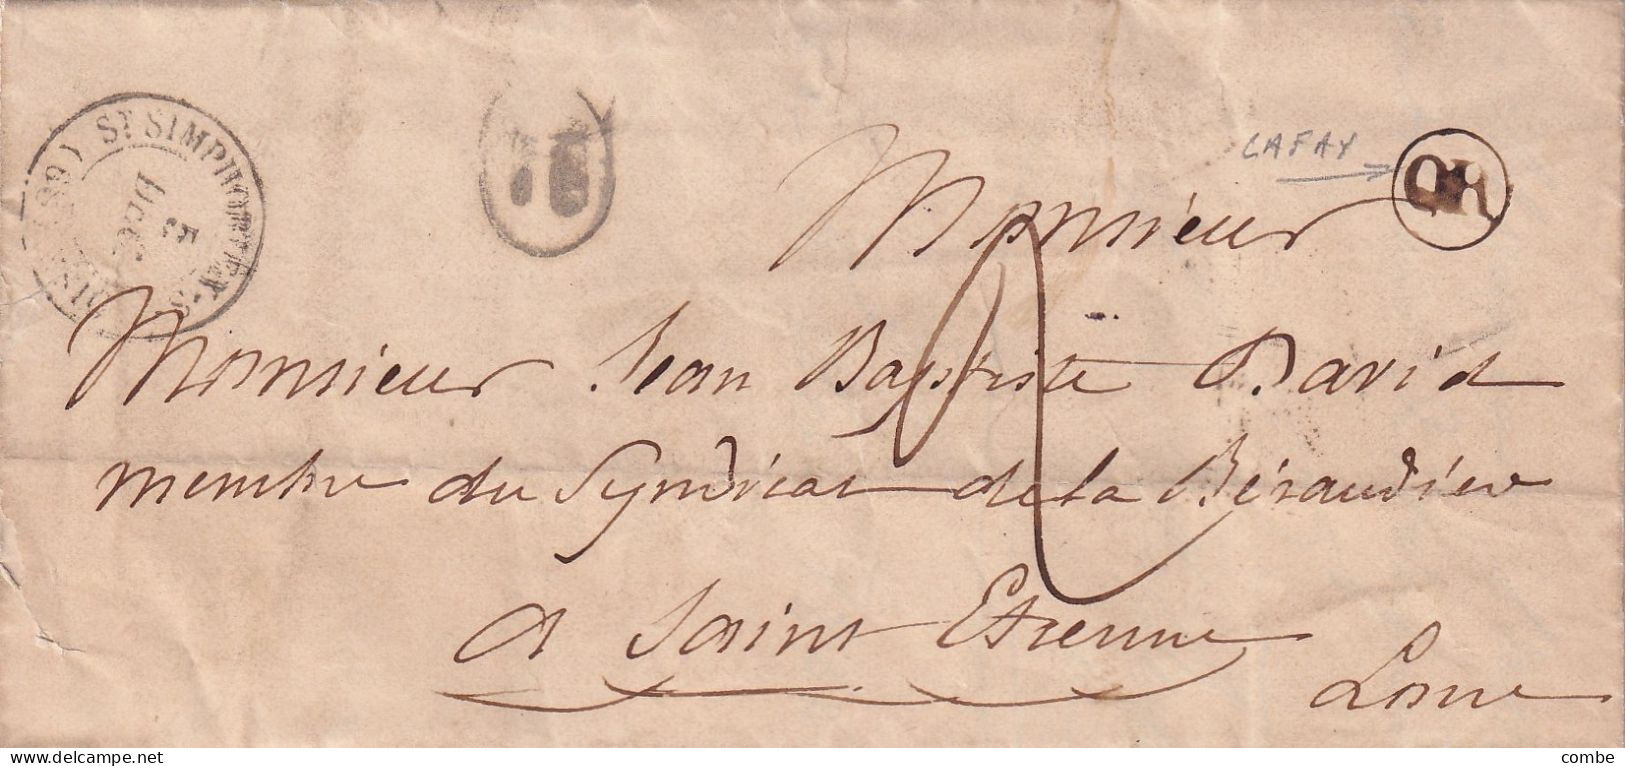 LAFAY
OR
(89) ST SIMPHORIEN-S
5
Monsieur
Monsieur Jean Baptiste David
membre du Syndicat de la Béraudière
A Saint Etienne
Loire
delcampe.net
combe